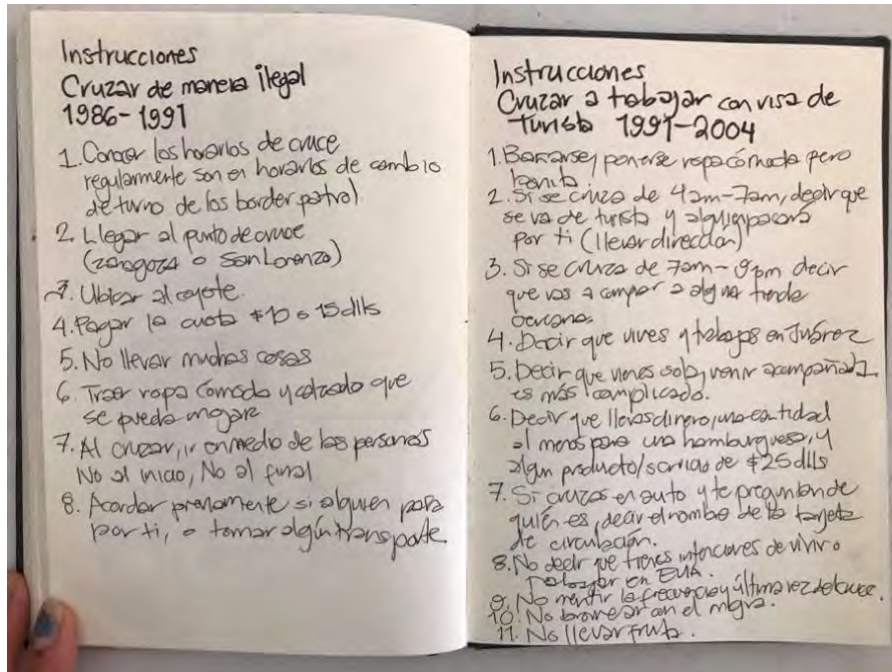 Instrucciones
Cruzar de manera ilegal
1986-1991
1. Conocer los horarios de cruce
regularmente son en horarios de cambio
de turno de los border patrol
2. Llegar al punto de cruce
(zaragoza o San Lorenzo)
3. Ubicar al coyote.
4. Pagar la cuota $10 o 15 dlls
5. No llevar muchas cosas
6. Traer ropa comoda y calzado que
se pueda mojar
7. Al cruzar, ir en medio de las personas
No al inicio, No al final
8. Acordar previamente si alguien pasa
por ti, o tomar algún transporte.
Instrucciones
Cruzar a trabajar con visa de
Turista 1991-2004
1. Bañarse y ponerse ropa cómoda pero
bonita.
2. Si se cruza de 4am-7am, decir que
se va de turista y alguien pasará
por ti (llevar dirección)
3. Si se cruza de 7am-9pm decir
que vas a comprar a alguna tienda
cercana.
4. Decir que vives y trabajas en Juárez
5. Decir que vienes sola, venir acompañada
es más complicado.
6. Decir que llevas dinero, una cantidad
al menos para una hamburguesa, y
algún producto/servicio de $25 dlls
7. Si cruzas en auto y te preguntan de
quién es, decir el nombre de la tarjeta
de circulación.
8. No decir que tienes intenciones de vivir o
trabajar en EUA.
9. No mentir la frecuencia y última vez de cruce.
10. No bromear con el migra.
11. No llevar fruta.